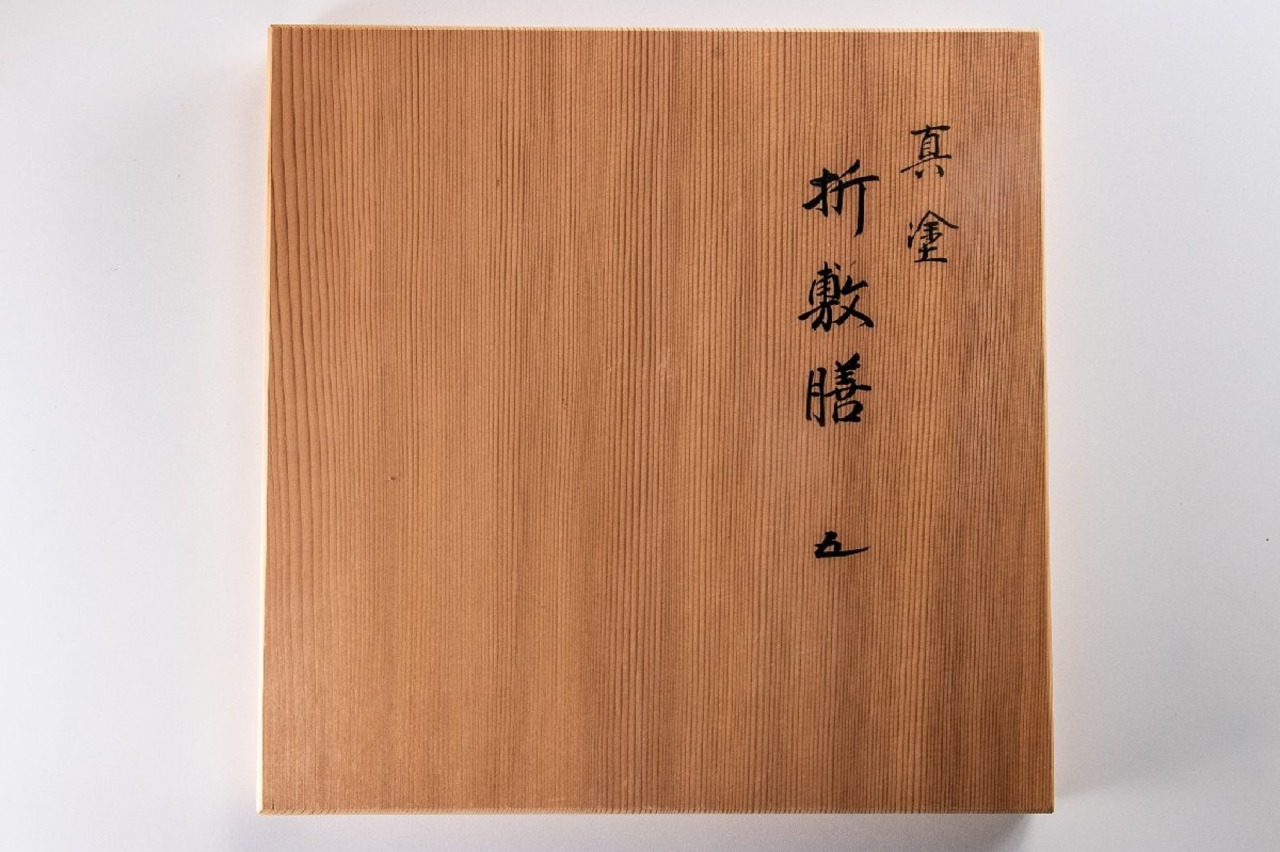 真塗
折敷膳 五